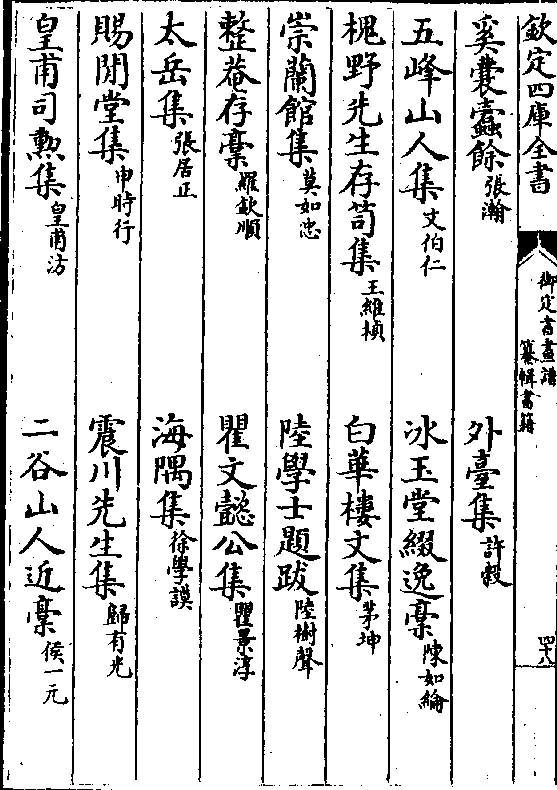 欽定四庫全書
御定書畫譜
纂輯書籍
四十八
奚囊蠹餘張瀚 外臺集許穀
五峰山人集文伯仁 冰玉堂綴逸稾陳如綸
槐野先生存笥集王維楨 白華樓文集茅坤
崇蘭館集莫如忠 陸學士題跋陸樹聲
整菴存稾羅欽順 瞿文懿公集瞿景淳
太岳集張居正 海隅集徐學謨
賜閒堂集申時行 震川先生集歸有光
皇甫司勲集皇甫汸 二谷山人近稾侯一元